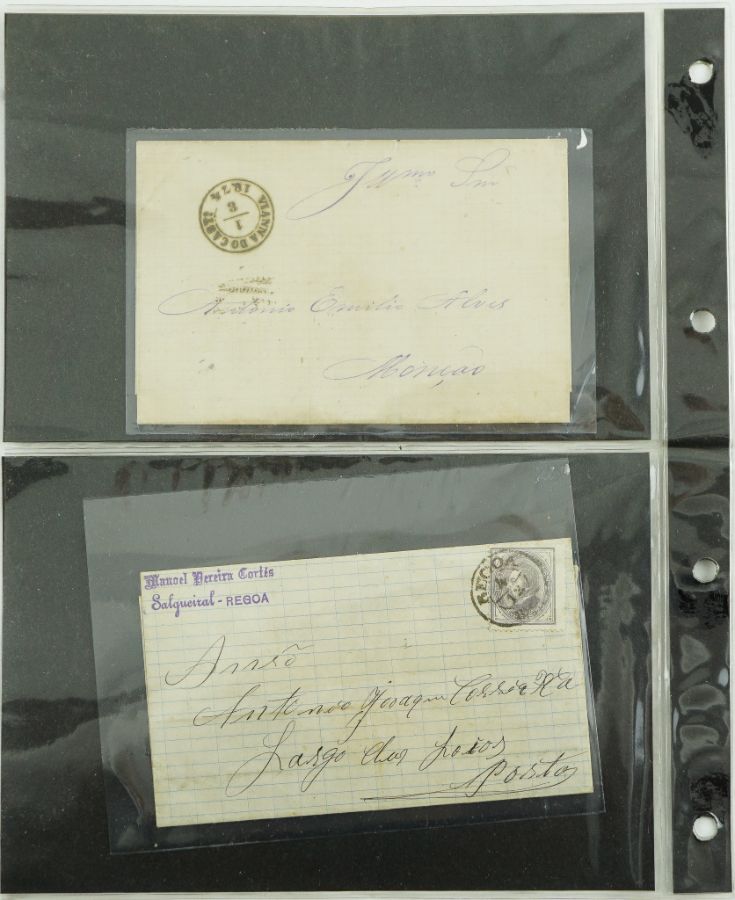 VIANNA DO CAST.º
1
8
1874
Antonio Emilio Alves
Monção
Manoel Pereira Cortês
Salgueiral - REGOA
REGOA
Antonio Joaqᵐ Corrêa
Largo dos Loios
Porto